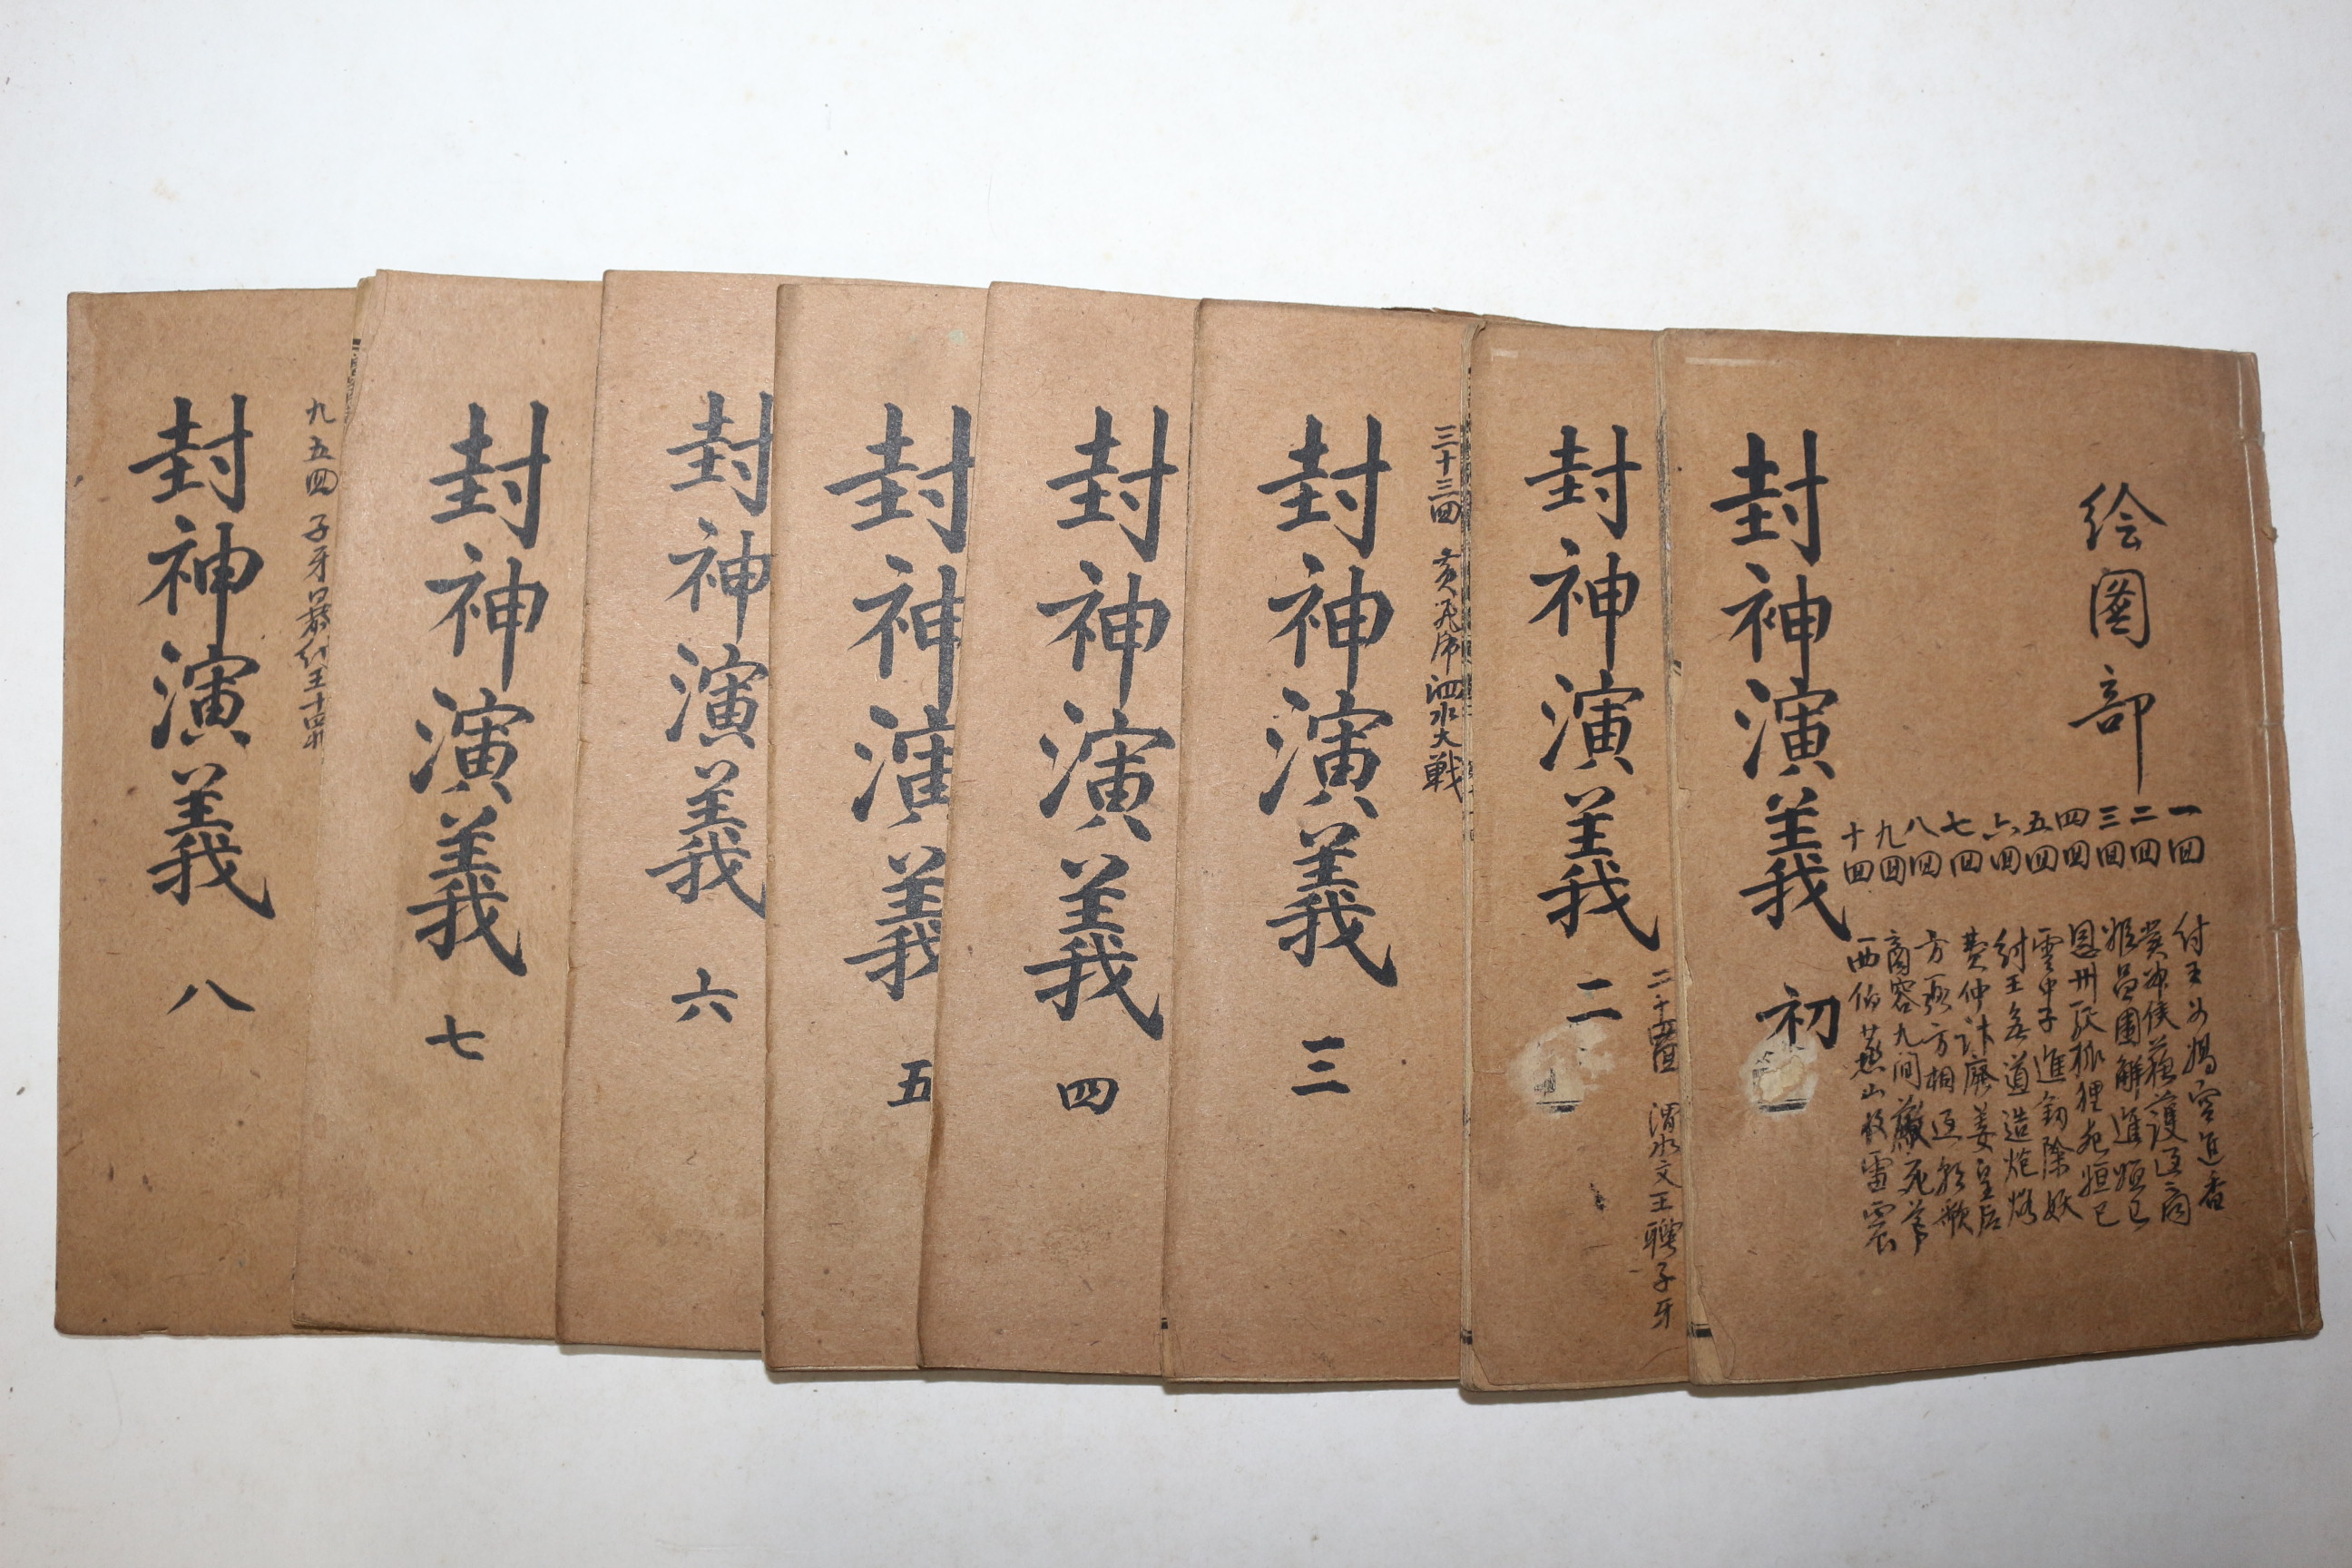 绘圖部
一回 付王女媧宮進香
二回 冀神侯蘓護逆商
三回 姬昌圍解進妲己
四回 恩州駅 狸死妲己
五回 雲中子進釼除妖
六回 紂王無道造炮烙
七回 費仲計廢姜皇后
八回 方弼方相逆朝歌
九回 商容九间殿死節
十回 西伯燕山收雷震
封神演義 初
二十四回 渭水文王聘子牙
封神演義 二
三十三回 黃飛虎泗水大戦
封神演義 三
封神演義 四
封神演義 五
封神演義 六
封神演義 七
九五回 子牙暴紂王十罪
封神演義 八